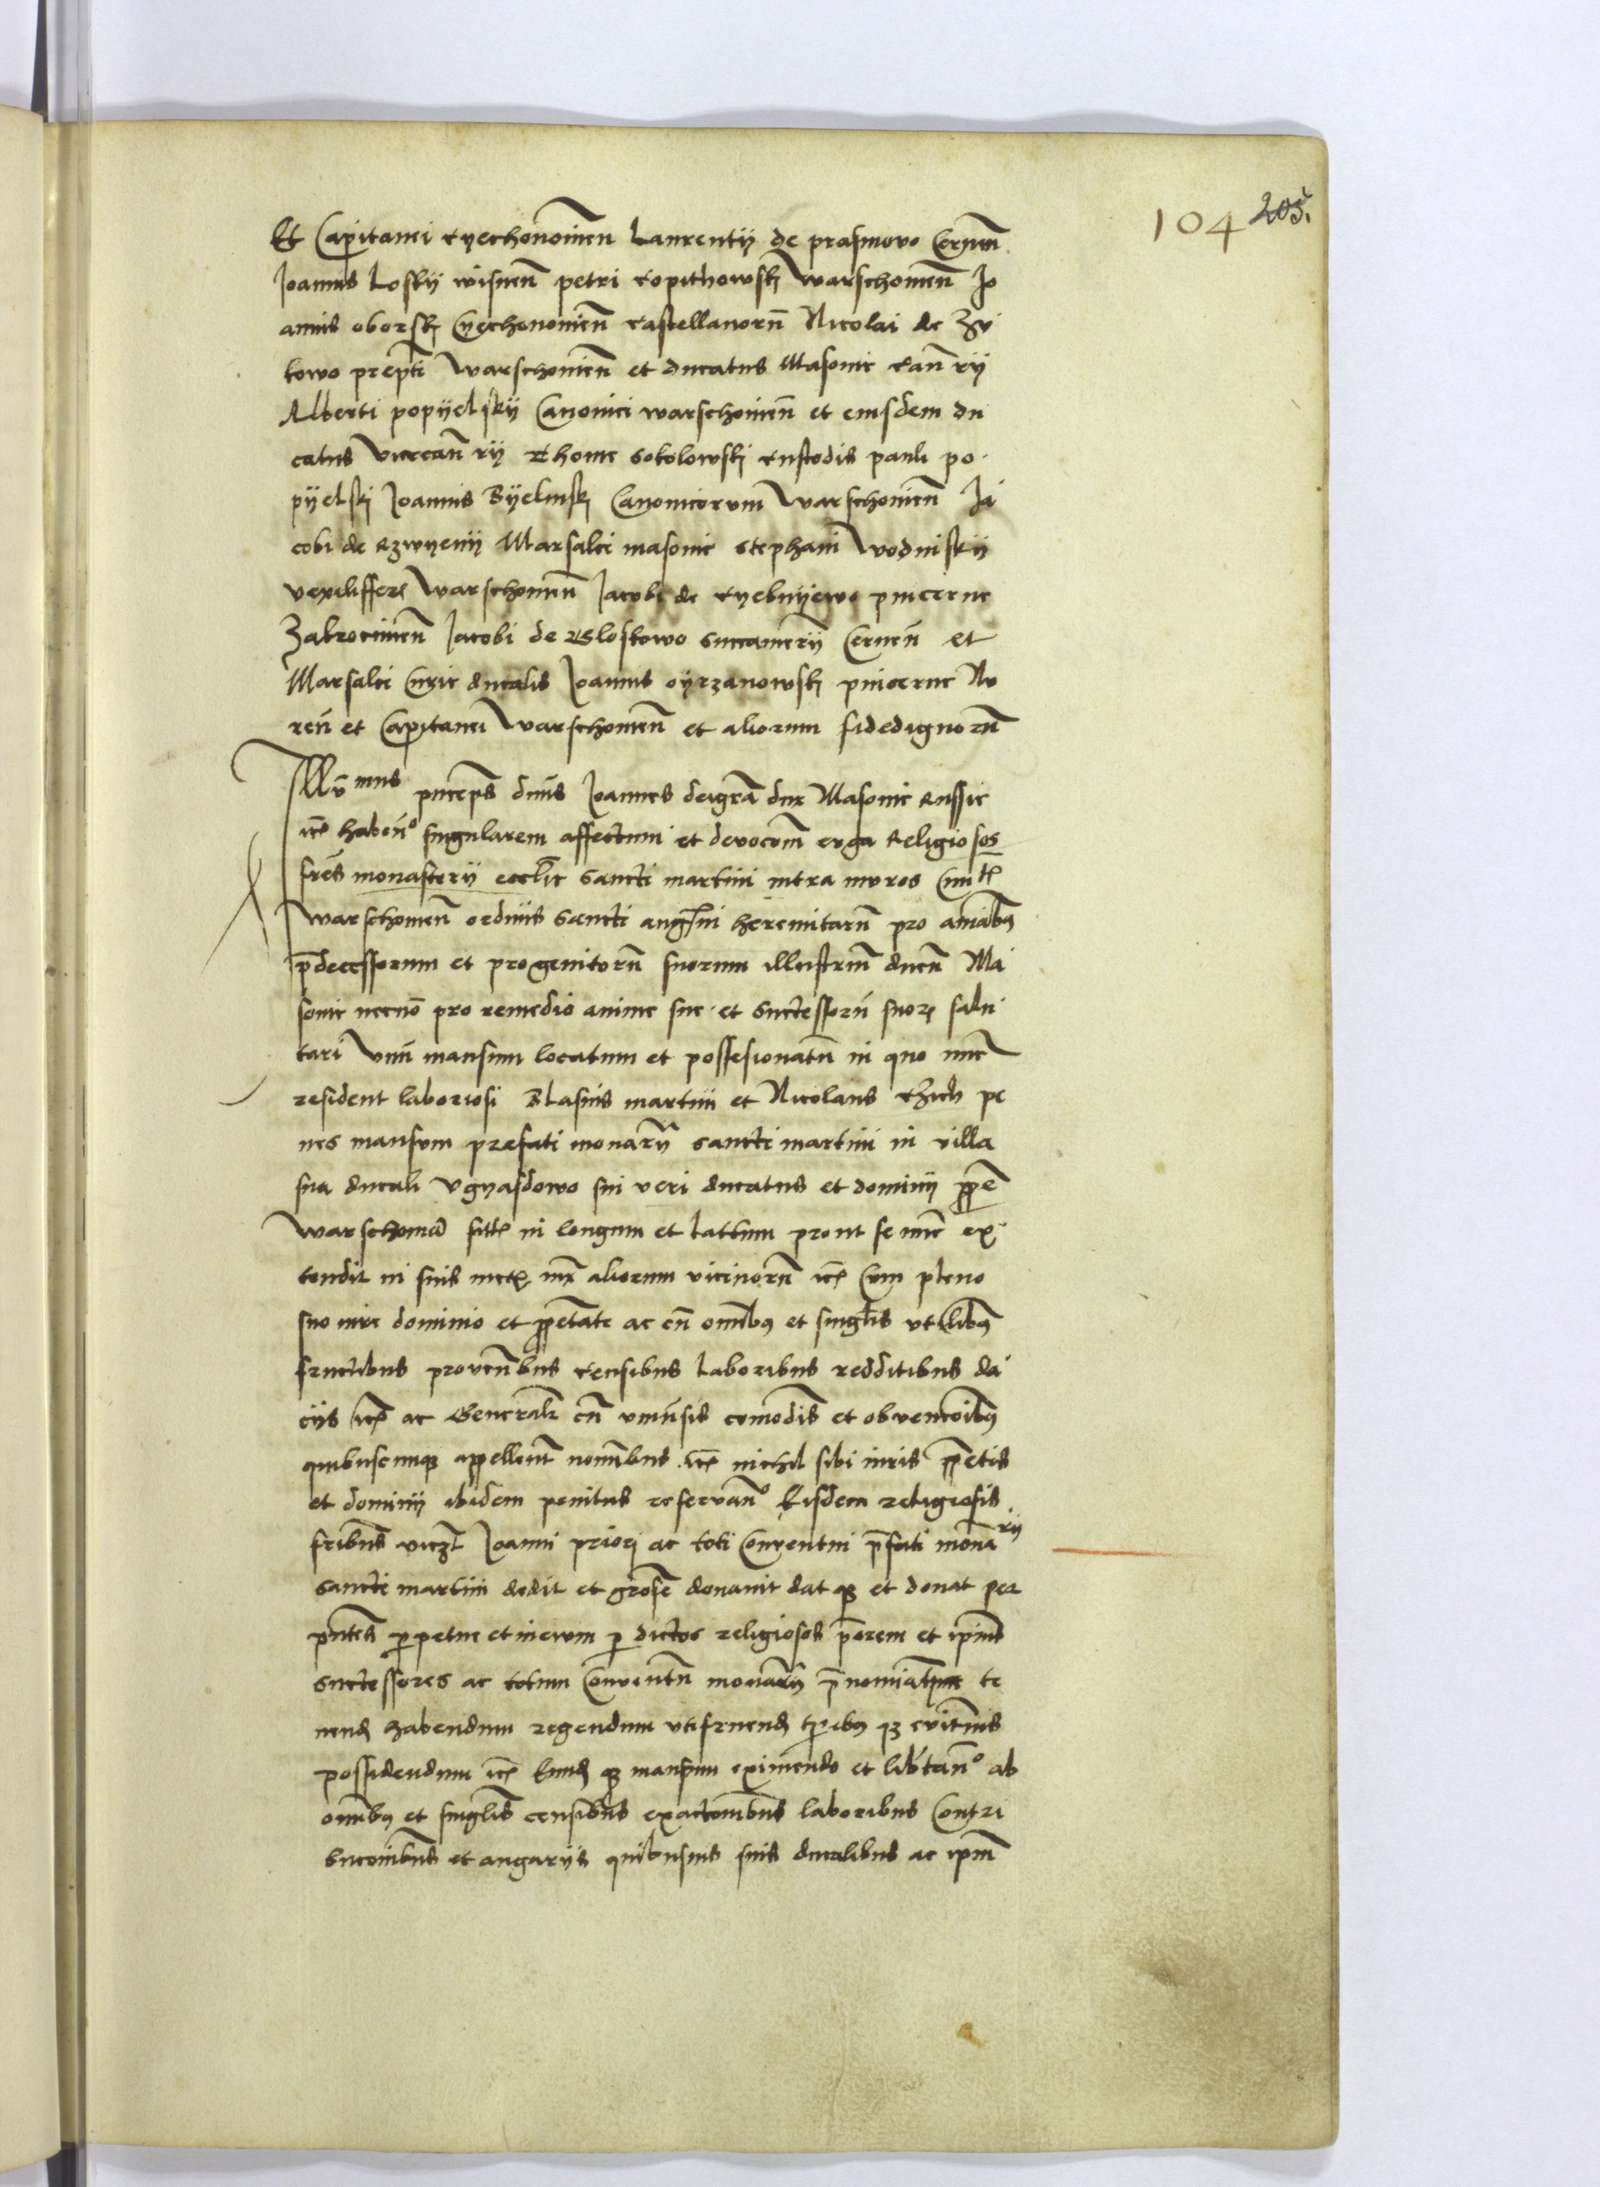 104 205.
Et Capitanei Cyechonoinen Laurentij de prasmowo Cernen
Joannis Loskij wisnen petri Copithowskj Warschouien Jo
annis oborskj Cyechonouien Castellanorum Nicolai de Zu
kowo preptti Warschouien et ducatus Masouie Cancrij
Alberti popijelskij Canonici warschouien et eiusdem du
catus vicecanrij Thome Sokolowskj Custodis pauli po
pijelskj Joannis Byelinskj Canonicorum Warschouien Ja
cobi de Rzwyenij Marsalci masouie Stephani Wodniskij
vexilifferi Warschouien Jacobi de Cyebnijewo pincerne
Zakrocimen Jacobi de Gloskowo Succamerij Cernen et
Marsalci Curie ducalis Joannis oyrzanowskj pincerne Nu
ren et Capitanei Warschouien et aliorum fidedignorum
Illumus princeps dnus Joannes deigra dux Masouie Russie
etc habendo singularem affectum et deuocom erga Religiosos
fres monasterij ecclie Sancti martini intra muros Ciuitatis
Warschouien ordinis Sancti augustini heremitarum pro animabus
predecessorum et progenitorum suorum illustrium ducum Ma
souie necno pro remedio anime sue et Successorum suorum salu
tari Vnum mansum locatum et possesionatum in quo nunc
resident laboriosi Blasius martini et Nicolaus Chich pe
nes mansum prefati monarij Sancti martini in villa
sua ducali Vgyasdowo sui veri ducatus et dominij prope
Warschouia sitis in longum et Latum prout se nunc ex
tendit in suis metis inter aliorum vicinorum etc Cum pleno
suo iure dominio et ppetate ac cum omnibus et singulis vtilibus
fructibus prouenbus Censibus Laboribus redditibus da
ciis etc ac Generali cum vniuersis comodis et obuencoibus
quibuscunque appellent nominibus etc nichil sibi iuris ppetis
et dominij ibidem penitus reseruando Eisdem religiosis
fribus viczl Joanni priori ac toti Conuentui prefati monarij
Sancti martini dedit et grose donauit dat que et donat per
pntes perpetue et in euum per dictos religiosos priorem et ipius
Successores ac totum Conuentum monarij prenominatum te
nend habendum regendum vtifruend tparibus que euiternis
possidendum etc Eund que mansum eximendo et libertando ab
omnibus et singulis censibus exactoinibus laboribus Contri
bucoinibus et angarijs quibusuis suis ducalibus ac ipm